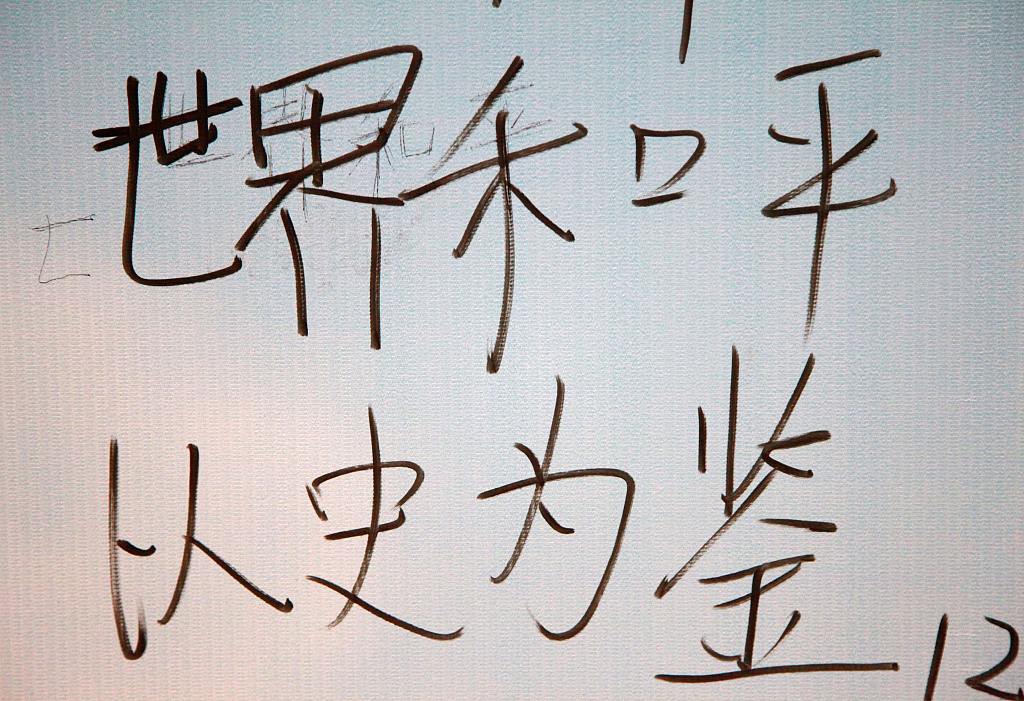 世界和平
以史为鉴
12